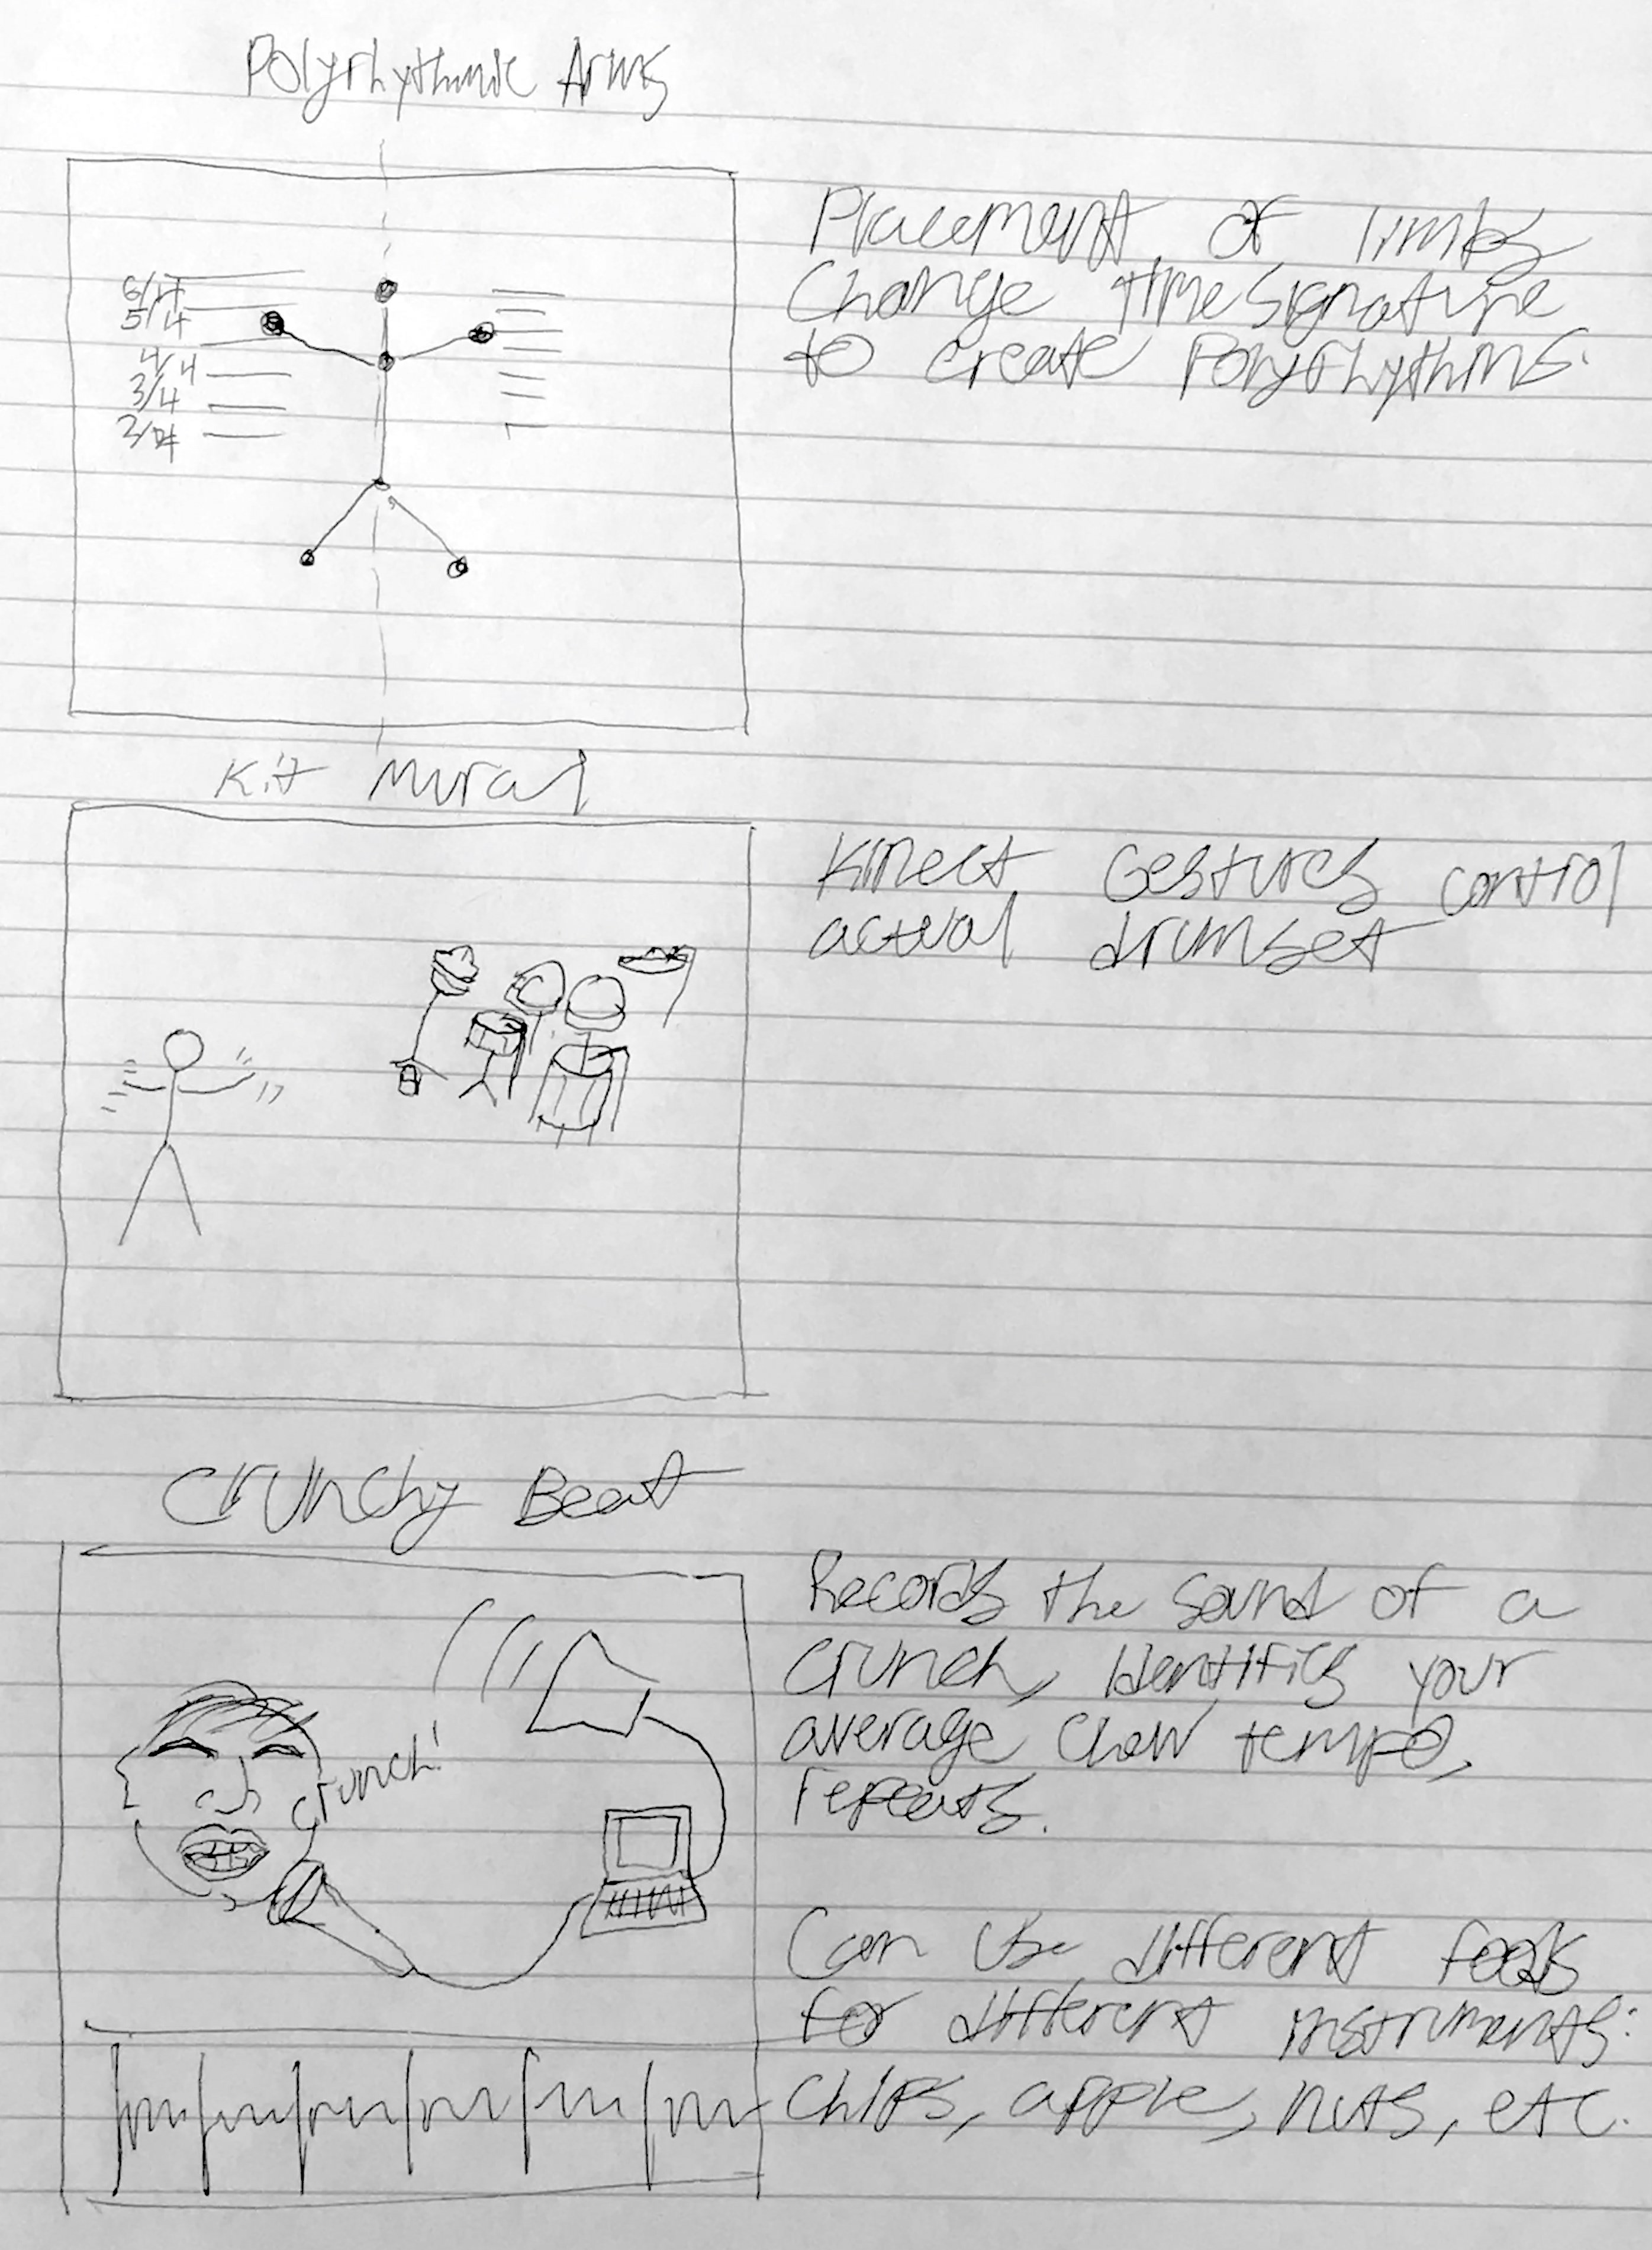 Polyrhythmic Arms
6/4
5/4
4/4
3/4
2/4
Placement of limbs
Change time signature
to create Polyrhythms.
Kit Mural
Kinect Gestures control
actual drumset
Crunchy Beat
crunch!
Records the sound of a
crunch, identifies your
average chew tempo,
repeats.
Can use different foods
for different instruments:
chips, apple, nuts, etc.